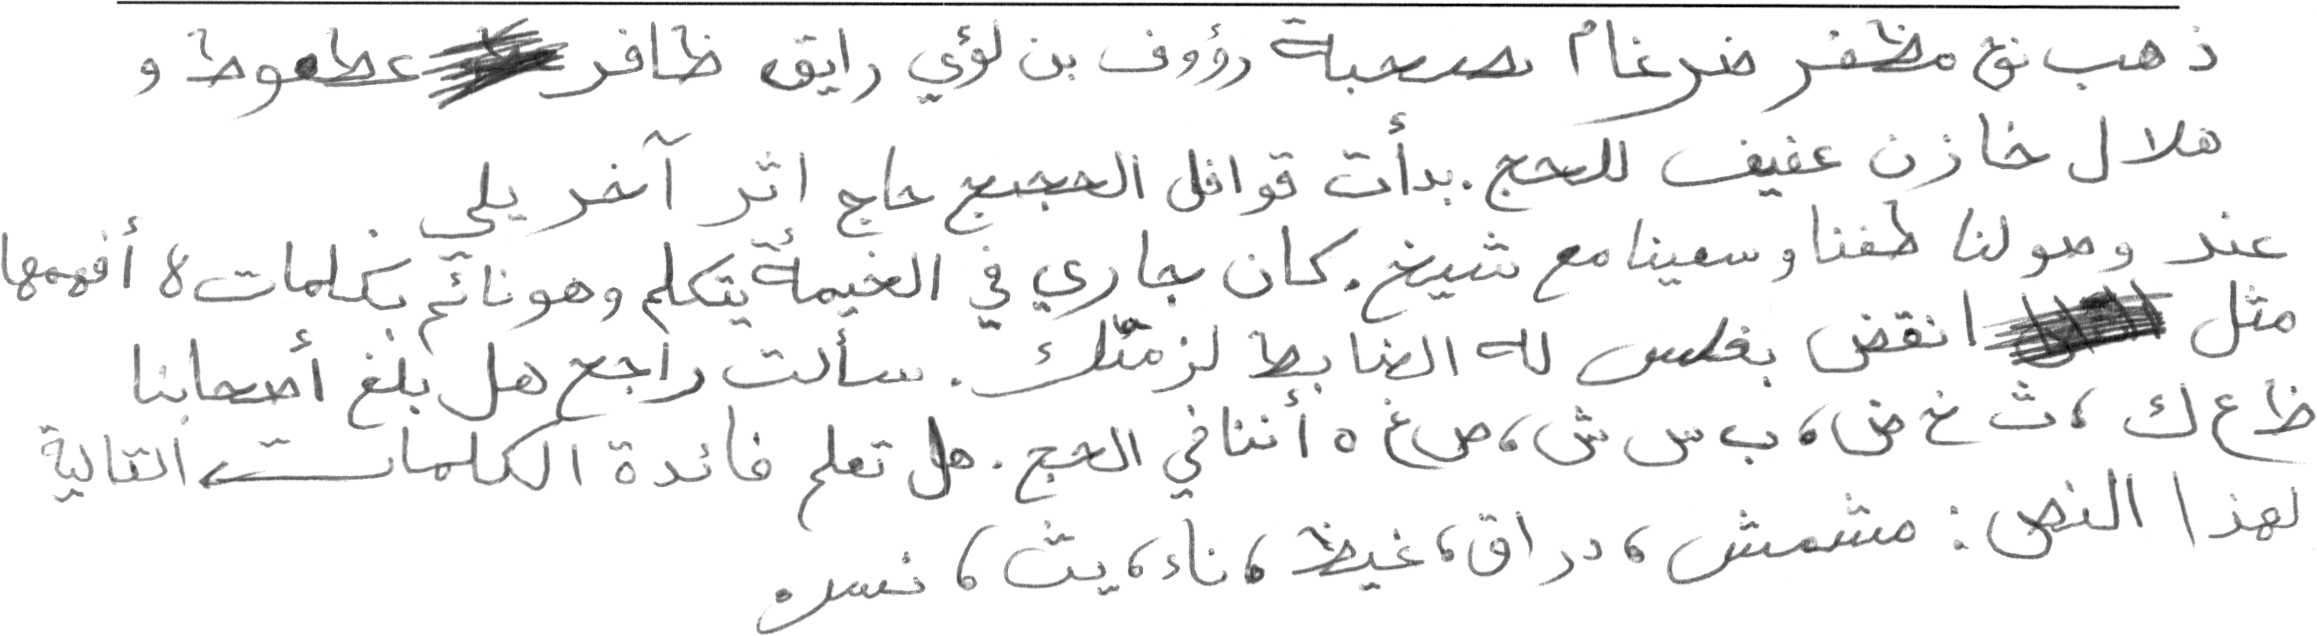 ذهب نوح مظفر ضرغام بصحبة رؤوف بن لؤي رايق ظافر عطعوط و
هلال خازن عفيف للحج. بدأت قوافل الحجيج حاج اثر آخر يلي
عند وصولنا طفنا وسعينا مع شيخ. كان جاري في الخيمة يتكلم وهو نائم بكلمات لا أفهمها
مثل انقض بغلس له الضابط لزمتك. سألت راجح هل بلغ أصحابنا
ظ ع ك، ث خ ض، ب س ش، ص غ ه أننا في الحج. هل تعلم فائدة الكلمات التالية
لهذا النص: مشمش، دراق، غيظ، ناء، يث، نسر.